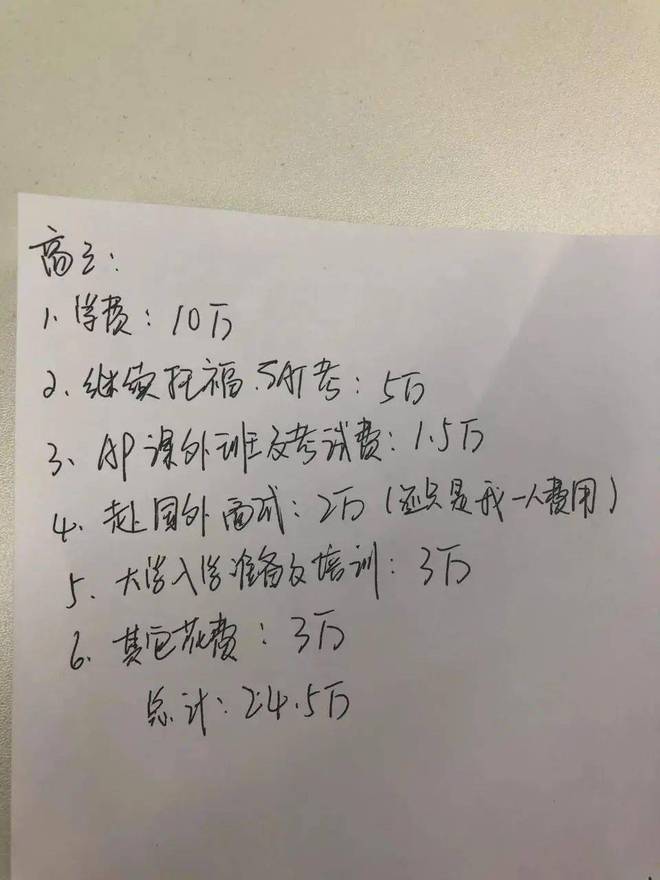 高三:
1、学费: 10万
2、继续托福、SAT考: 5万
3、AP课外班及考试费: 1.5万
4、赴国外面试: 2万 (还只是我一人费用)
5、大学入学准备及培训: 3万
6、其它花费: 3万
总计: 24.5万